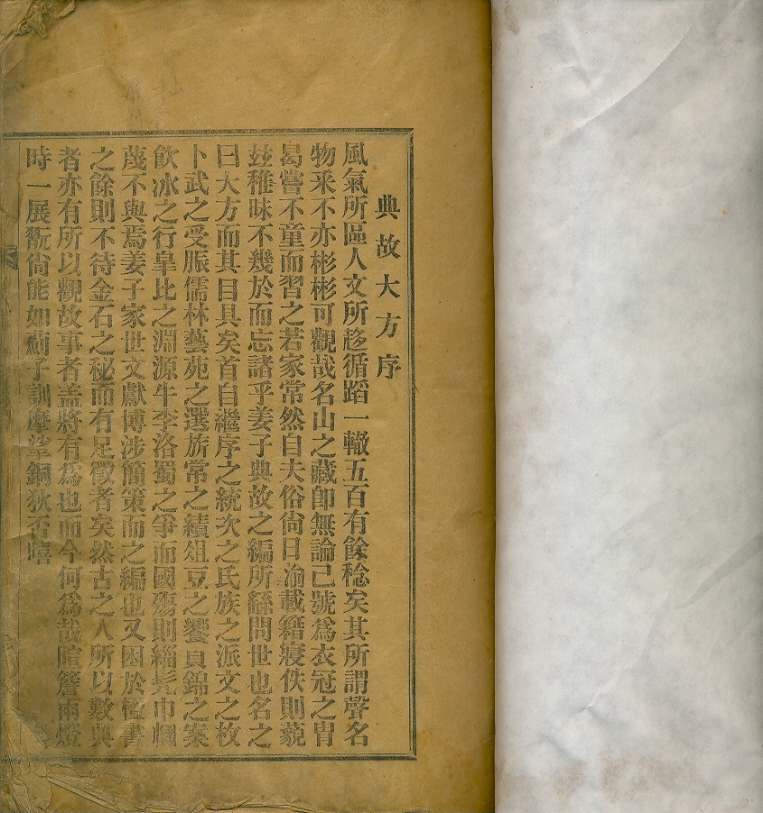 典故大方序
風氣所區人文所趍循蹈一轍五百有餘稔矣其所謂聲名
物釆不亦彬彬可觀哉名山之藏卽無論已號爲衣冠之胄
曷嘗不童而習之若家常然自夫俗尙日渝載籍寢佚則藐
玆稚昧不幾於而忘諸乎姜子典故之編所繇問世也名之
曰大方而其目具矣首自繼序之統次之氏族之派文之枚
卜武之受脤儒林藝苑之選旂常之績俎豆之饗貝錦之案
飮冰之行皐比之淵源牛李洛蜀之爭而國殤則緇髡巾幗
蔑不與焉姜子家世文獻博涉簡策而之編也又困於檻書
之餘則不待金石之秘而有足徵者矣然古之人所以數典
者亦有所以觀故事者盖將有爲也而今何爲哉暄簷雨燈
時一展翫尙能如薊子訓摩挲銅狄否嘻